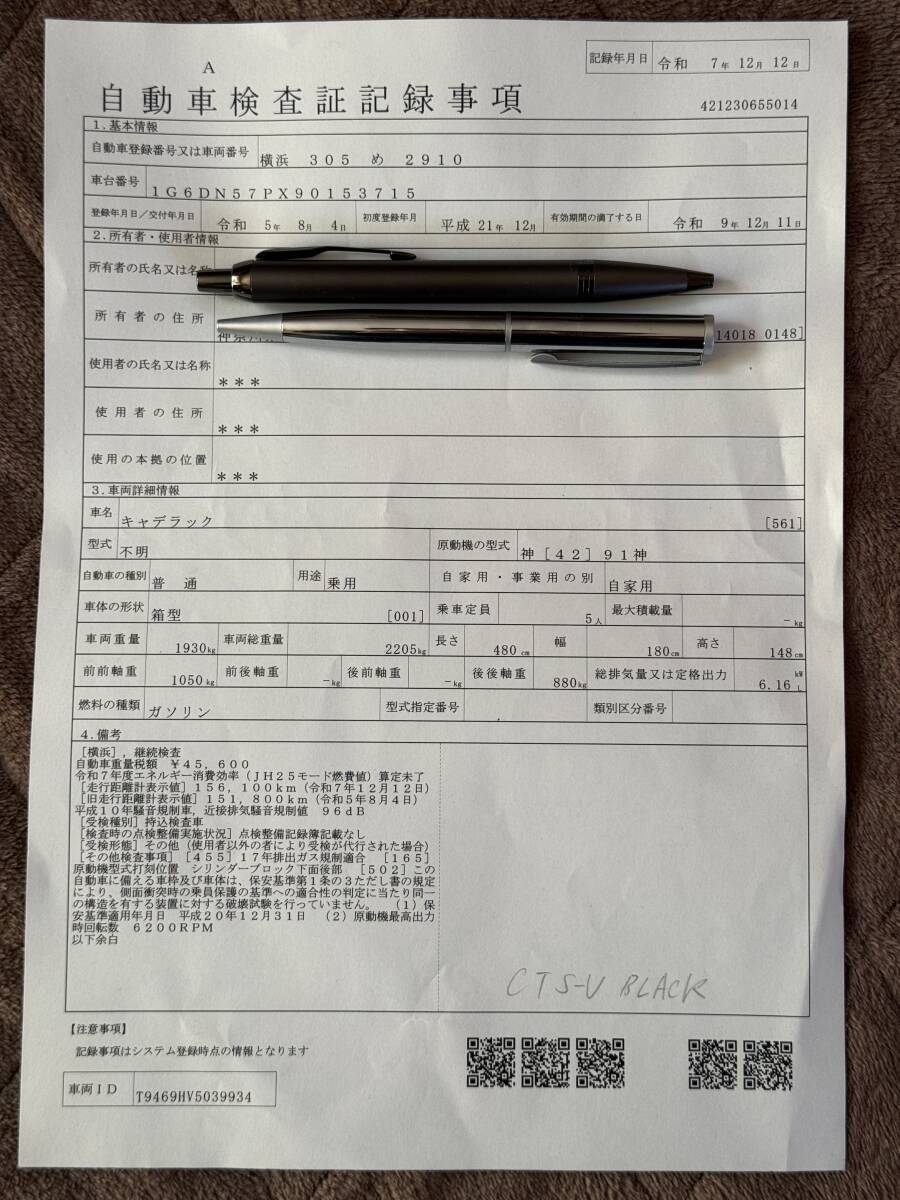 A
記録年月日 令和 7年 12月 12日
自動車検査証記録事項
421230655014
1.基本情報
自動車登録番号又は車両番号 横浜 305 め 2910
車台番号 1G6DN57PX90153715
登録年月日/交付年月日 令和 5年 8月 4日 初度登録年月 平成 21年 12月 有効期間の満了する日 令和 9年 12月 11日
2.所有者・使用者情報
所有者の氏名又は名称
所有者の住所 神奈川 14018 0148]
使用者の氏名又は名称 ***
使用者の住所 ***
使用の本拠の位置 ***
3.車両詳細情報
車名 キャデラック [561]
型式 不明 原動機の型式 神[42]91神
自動車の種別 普通 用途 乗用 自家用・事業用の別 自家用
車体の形状 箱型 [001] 乗車定員 5人 最大積載量 -kg
車両重量 1930kg 車両総重量 2205kg 長さ 480cm 幅 180cm 高さ 148cm
前前軸重 1050kg 前後軸重 -kg 後前軸重 -kg 後後軸重 880kg 総排気量又は定格出力 6.16 kW L
燃料の種類 ガソリン 型式指定番号 類別区分番号
4.備考
[横浜],継続検査
自動車重量税額 ¥45,600
令和7年度エネルギー消費効率(JH25モード燃費値)算定未了
[走行距離計表示値]156,100km(令和7年12月12日)
[旧走行距離計表示値]151,800km(令和5年8月4日)
平成10年騒音規制車,近接排気騒音規制値 96dB
[受検種別]持込検査車
[検査時の点検整備実施状況]点検整備記録簿記載なし
[受検形態]その他(使用者以外の者により受検が代行された場合)
[その他検査事項][455]17年排出ガス規制適合 [165]
原動機型式打刻位置 シリンダーブロック下面後部 [502]この
自動車に備える車枠及び車体は、保安基準第1条の3ただし書の規定
により、側面衝突時の乗員保護の基準への適合性の判定に当たり同一
の構造を有する装置に対する破壊試験を行っていません。 (1)保
安基準適用年月日 平成20年12月31日 (2)原動機最高出力
時回転数 6200RPM
以下余白
CTS-V BLACK
【注意事項】
記録事項はシステム登録時点の情報となります
車両ID T9469HV5039934